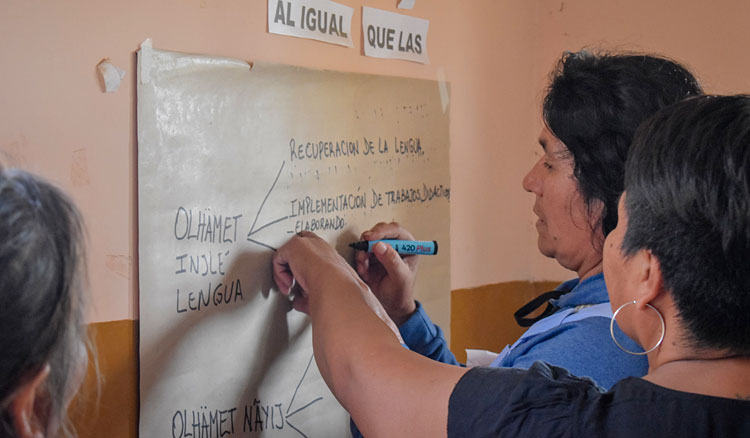 AL IGUAL
QUE LAS
RECUPERACIÓN DE LA LENGUA,
IMPLEMENTACIÓN DE TRABAJOS DIDACTICOS
- ELABORANDO
OLHÄMET
INJLÉ
LENGUA
420 Plus
OLHÄMET NÄYIJ